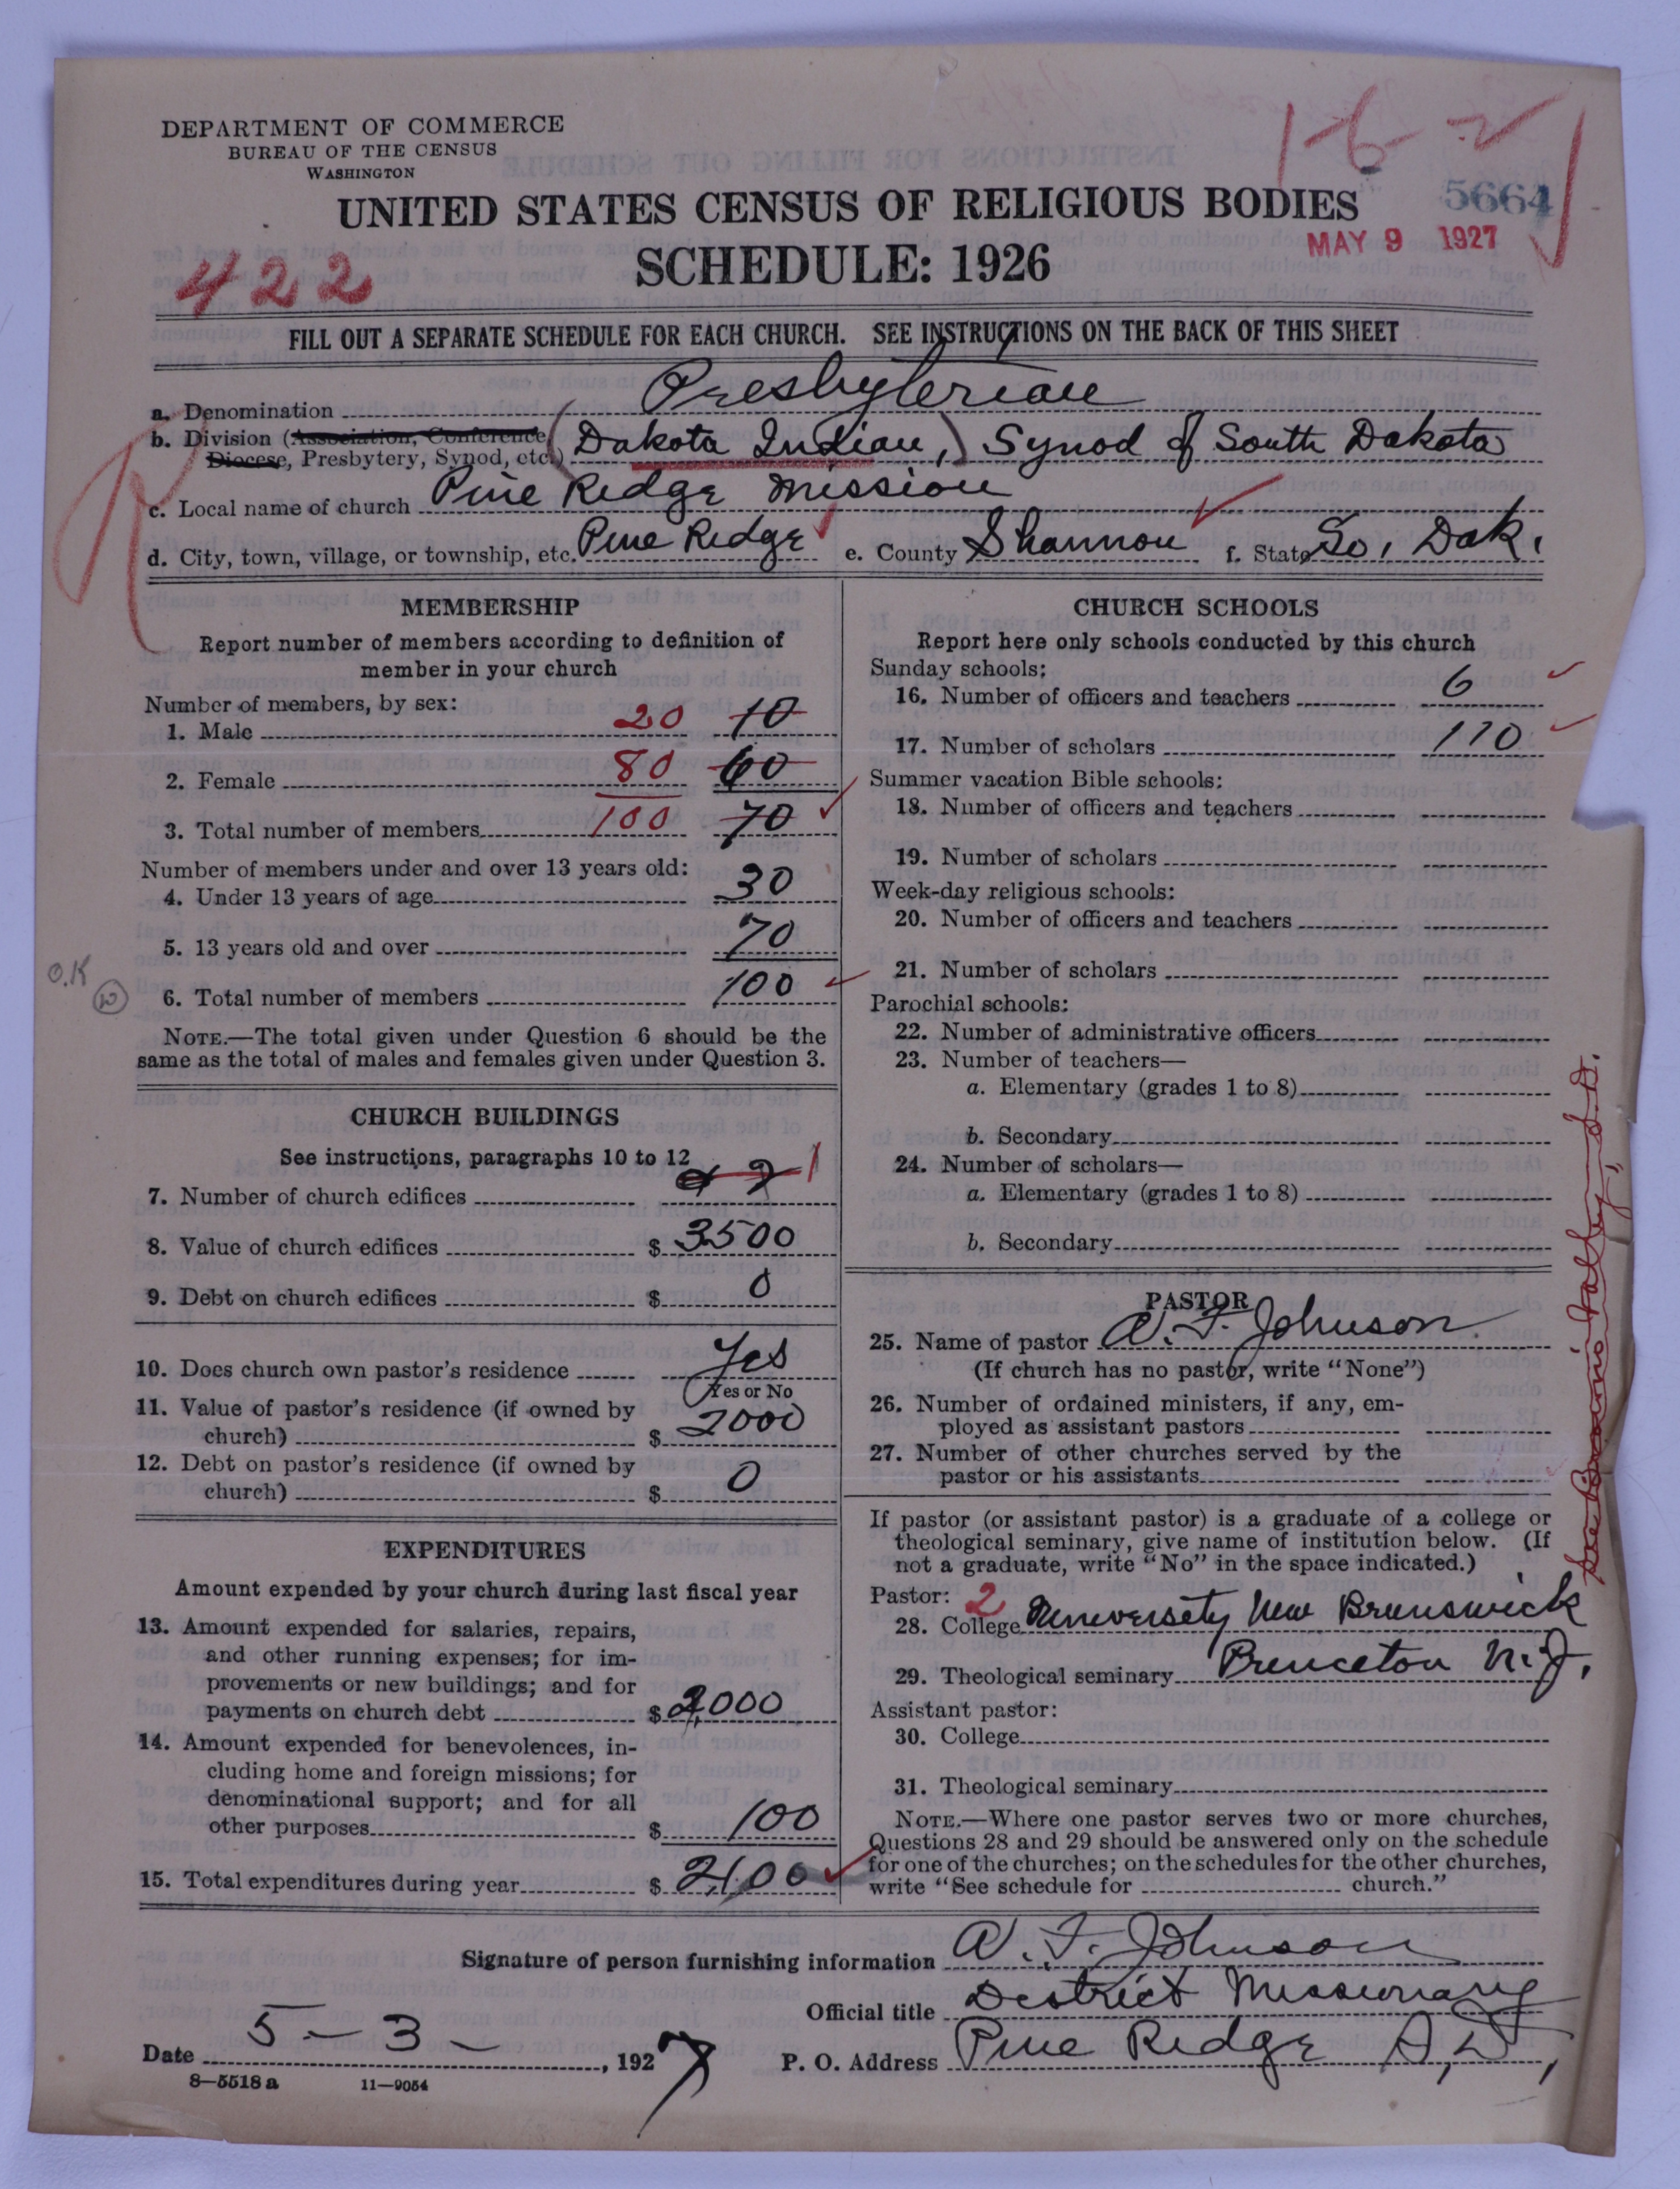 DEPARTMENT OF COMMERCE
BUREAU OF THE CENSUS
WASHINGTON
1-6-2
5664
UNITED STATES CENSUS OF RELIGIOUS BODIES
MAY 9 1927
SCHEDULE: 1926
422
FILL OUT A SEPARATE SCHEDULE FOR EACH CHURCH. SEE INSTRUCTIONS ON THE BACK OF THIS SHEET
a. Denomination Presbyterian
b. Division (Association, Conference, (Dakota Indian,) Synod of South Dakota
Diocese, Presbytery, Synod, etc.)
c. Local name of church Pine Ridge Mission
d. City, town, village, or township, etc. Pine Ridge e. County Shannon f. State So. Dak.
MEMBERSHIP
Report number of members according to definition of
member in your church
Number of members, by sex:
1. Male 20 10
2. Female 80 60
3. Total number of members 100 70
Number of members under and over 13 years old:
4. Under 13 years of age 30
5. 13 years old and over 70
O.K
6. Total number of members 100
NOTE.—The total given under Question 6 should be the
same as the total of males and females given under Question 3.
CHURCH BUILDINGS
See instructions, paragraphs 10 to 12
7. Number of church edifices 2 1
8. Value of church edifices $ 3500
9. Debt on church edifices $ 0
10. Does church own pastor's residence Yes
Yes or No
11. Value of pastor's residence (if owned by
church) $ 2000
12. Debt on pastor's residence (if owned by
church) $ 0
EXPENDITURES
Amount expended by your church during last fiscal year
13. Amount expended for salaries, repairs,
and other running expenses; for im-
provements or new buildings; and for
payments on church debt $ 2,000
14. Amount expended for benevolences, in-
cluding home and foreign missions; for
denominational support; and for all
other purposes $ 100
15. Total expenditures during year $ 2,100
CHURCH SCHOOLS
Report here only schools conducted by this church
Sunday schools:
16. Number of officers and teachers 6
17. Number of scholars 110
Summer vacation Bible schools:
18. Number of officers and teachers
19. Number of scholars
Week-day religious schools:
20. Number of officers and teachers
21. Number of scholars
Parochial schools:
22. Number of administrative officers
23. Number of teachers—
a. Elementary (grades 1 to 8)
b. Secondary
24. Number of scholars—
a. Elementary (grades 1 to 8)
b. Secondary
PASTOR
25. Name of pastor A. F. Johnson.
(If church has no pastor, write "None")
26. Number of ordained ministers, if any, em-
ployed as assistant pastors
27. Number of other churches served by the
pastor or his assistants
If pastor (or assistant pastor) is a graduate of a college or
theological seminary, give name of institution below. (If
not a graduate, write "No" in the space indicated.)
Pastor: 2
28. College University New Brunswick
29. Theological seminary Princeton N.J.
Assistant pastor:
30. College
31. Theological seminary
NOTE.—Where one pastor serves two or more churches,
Questions 28 and 29 should be answered only on the schedule
for one of the churches; on the schedules for the other churches,
write "See schedule for church."
Signature of person furnishing information A. F. Johnson
Official title District Missionary
Date 5-3-, 1927 P. O. Address Pine Ridge S. D.,
8—5518 a 11—9054